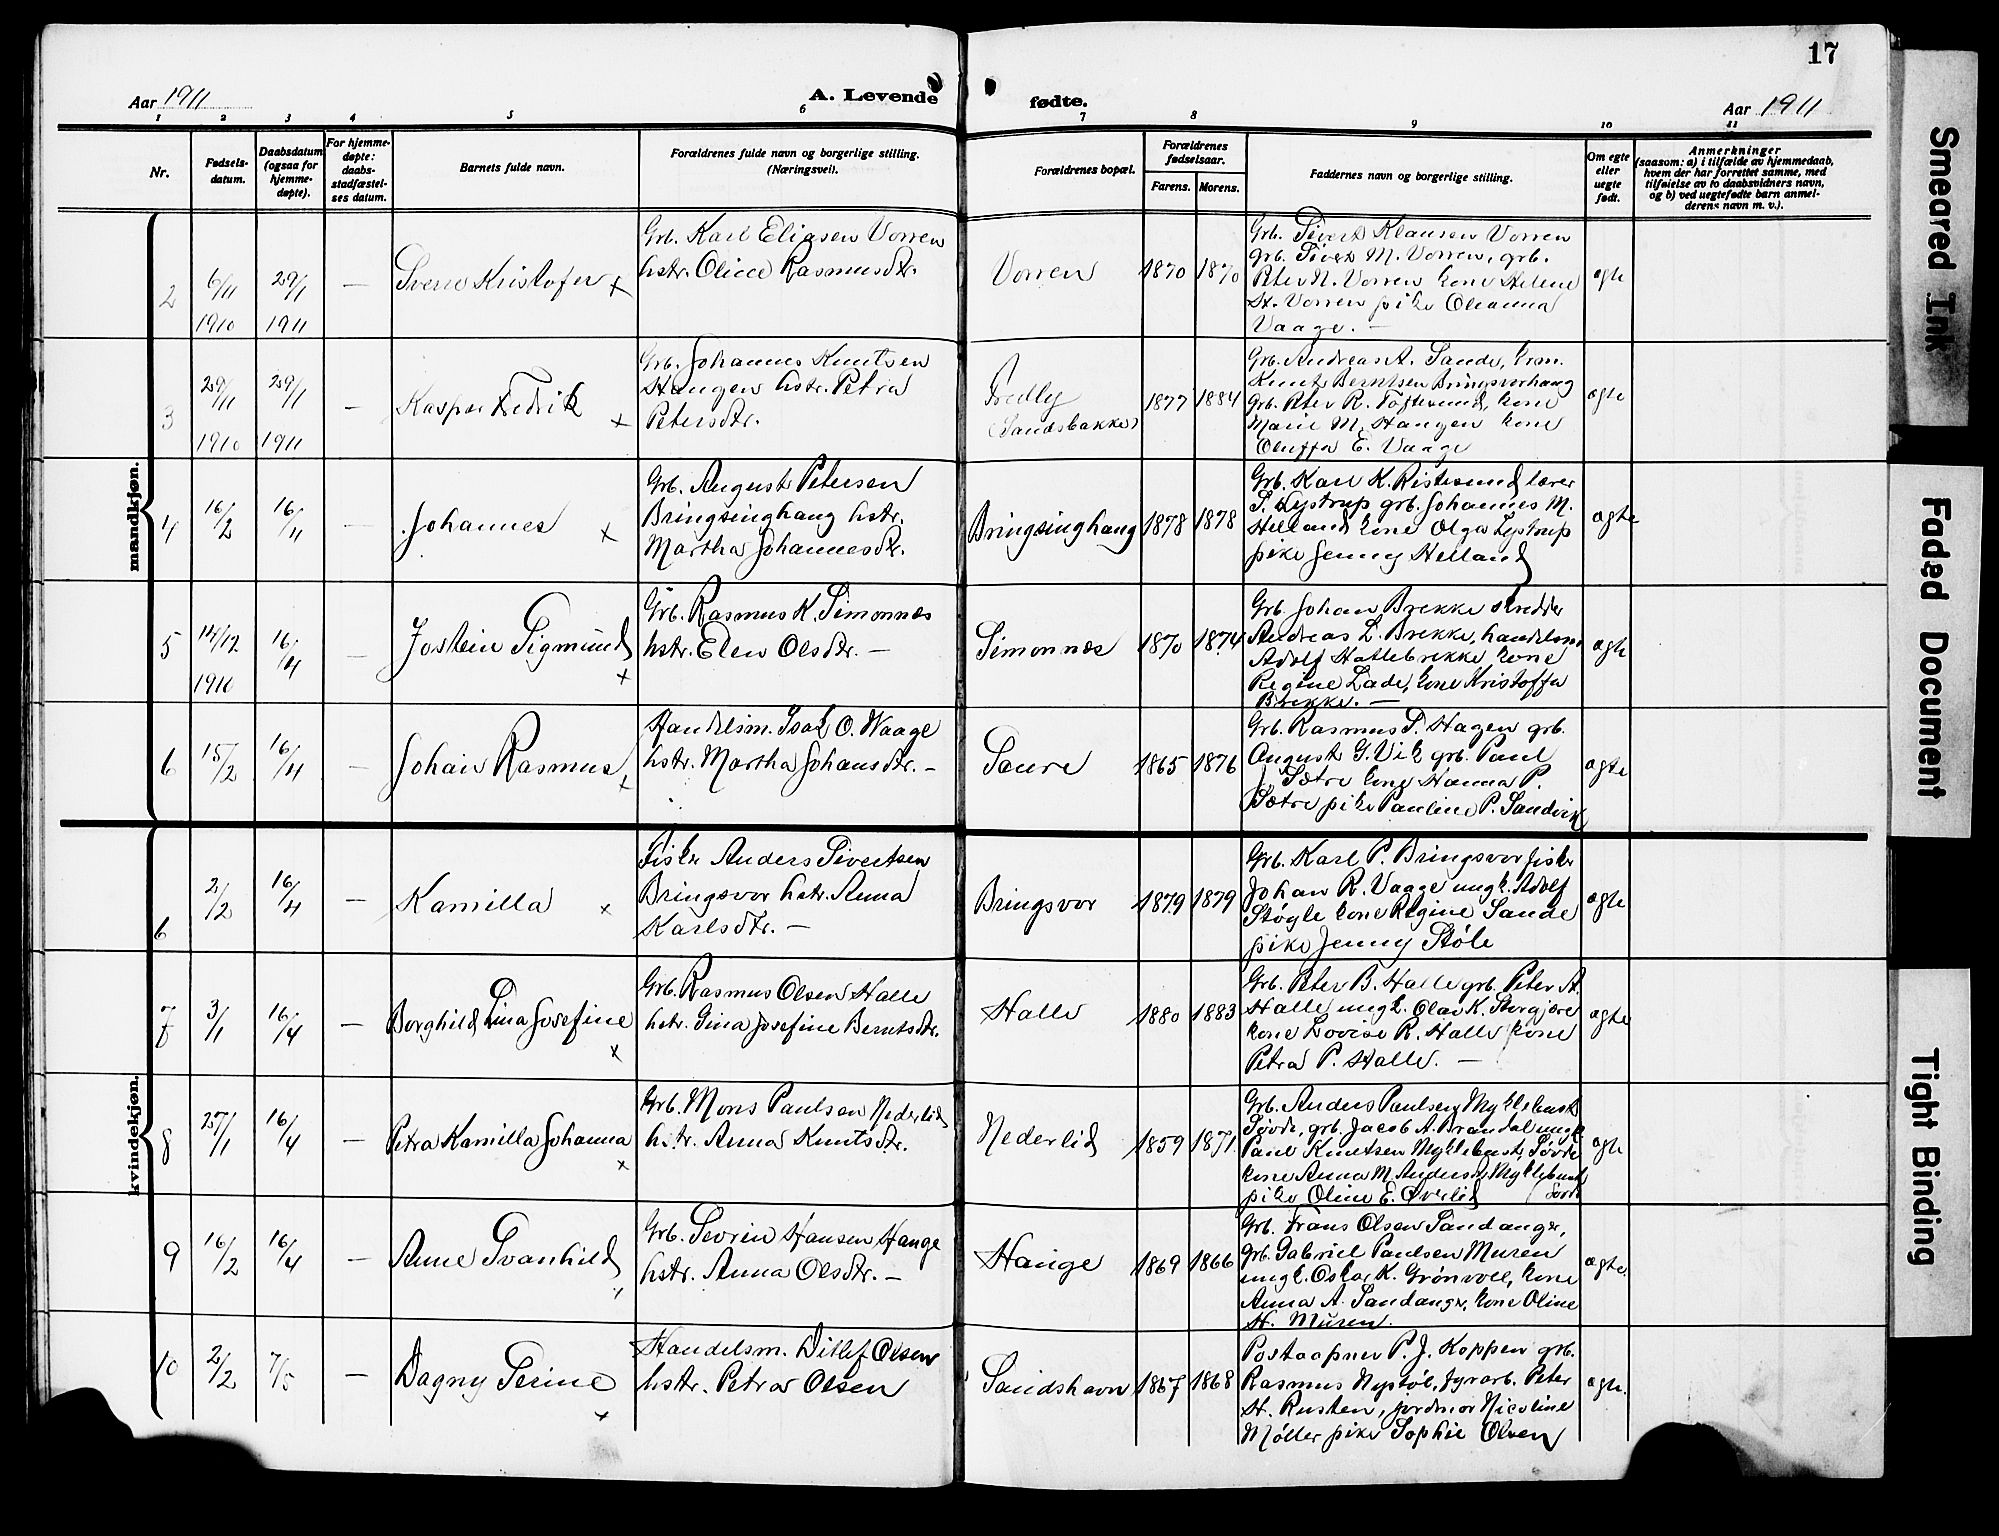 17
Aar 1911
A. Levende
fødte.
Aar 1911
1 2 3 4 5 6 7 8 9 10 11
Nr.
Fødsels-
datum.
Daabsdatum
(ogsaa for
hjemme-
døpte).
For hjemme-
døpte:
daabs-
stadfæstel-
ses datum.
Barnets fulde navn.
Forældrenes fulde navn og borgerlige stilling.
(Næringsvei).
Forældrenes bopæl.
Forældrenes
fødselsaar.
Farens. Morens.
Faddernes navn og borgerlige stilling.
Om egte
eller
uegte
født.
Anmerkninger
(saasom: a) i tilfælde av hjemmedaab,
hvem der har forrettet samme, med
tilføielse av to daabsvidners navn,
og b) ved uegtefødte barn anmel-
derens navn m. v.).
mandkjøn.
2
6/11
1910
29/1
1911
—
Sverre Kristofer x
Grb. Karl Eliasen Vorren
hstr. Olice Rasmusdtr.
Vorren
1870
1870
Grb. Sivert Klausen Vorren
grb. Sivert M. Vorren, grb.
Peter N. Vorren kone Helene
H. Vorren pike Oleanna
Vaage. —
ægte
3
29/11
1910
29/1
1911
—
Kaspar Fedrik x
Grb. Johannes Knutsen
Haugen hstr. Petra
Petersdtr.
Fredly
(Sandsbakke)
1877
1884
Grb. Andreas A. Sande,
Knut Berntsen Bringsvorhaug
Grb. Peter R. Toftesund, kone
Marie M. Haugen kone
Oluffa E. Vaage
ægte
4
16/2
16/4
—
Johannes x
Grb. August Petersen
Bringsinghaug hstr.
Martha Johannesdtr.
Bringsinghaug
1878
1878
Grb. Karl K. Ristesund lærer
S. Lystrup grb. Johannes M.
Helland kone Olga Lystrup
pike Jenny Helland
ægte
5
14/12
1910
16/4
—
Jostein Sigmund x
Grb. Rasmus K. Simonnæs
hstr. Elen Olsdtr. —
Simonnæs
1870
1874
Grb. Johan Brekke skredder
Andreas L. Brekke, handelsm.
Adolf Hallebrekke kone
Regine Lade, kone Kristoffa
Brekke. —
ægte
6
15/2
16/4
—
Johan Rasmus x
Handelsm. Isak O. Waage
hstr. Martha Johansdtr. —
Saure
1865
1876
Grb. Rasmus P. Hagen grb.
August G. Vik grb. Paul
J. Sætre kone Hanna P.
Sætre pike Pauline P. Sandvik
ægte
kvindekjøn.
6
2/2
16/4
—
Kamilla x
Fisker Anders Sivertsen
Bringsvor hstr. Anna
Karlsdtr. —
Bringsvor
1879
1879
Grb. Karl P. Bringsvor fisker
Johan R. Vaage ungk. Adolf
Støyle kone Regine Sande
pike Jenny Støle
ægte
7
3/1
16/4
—
Borghild Lina Josefine x
Grb. Rasmus Olsen Halle
hstr. Gina Josefine Berntsdtr.
Halle
1880
1883
Grb. Peter B. Halle grb. Peter A.
Halle ungk. Olav K. Storgjære
kone Lovise R. Halle kone
Petra P. Halle. —
ægte
8
27/1
16/4
—
Petra Kamilla Johanna x
Grb. Mons Paulsen Nederlid
hstr. Anna Knutsdtr.
Nederlid
1859
1871
Grb. Anders Paulsen Myklebust
Søvde, grb. Jacob A. Brandal ungk.
Paul Knutsen Myklebust, Søvde
kone Anna M. Andersd. Myklebust
pike Oline E. Øverlid (Søvde
ægte
9
16/2
16/4
—
Anne Svanhild
Grb. Severin Hansen Hauge
hstr. Anna Olsdtr. —
Hauge
1869
1866
Grb. Frans Olsen Sandanger,
grb. Gabriel Paulsen Muren
ungk. Oskar K. Grønvoll, kone
Anna A. Sandanger, kone Oline
H. Muren.
ægte
10
2/2
7/5
—
Dagny Perine x
Handelsm. Ditlef Olsen
hstr. Petra Olsen
Sandshavn
1867
1868
Postaapner P. J. Koppen grb.
Rasmus Nystøl, fyrarb. Peter
H. Rusten, jordmor Nicoline
Møller pike Sophie Olsen
ægte.
Smeared Ink
Faded Document
Tight Binding